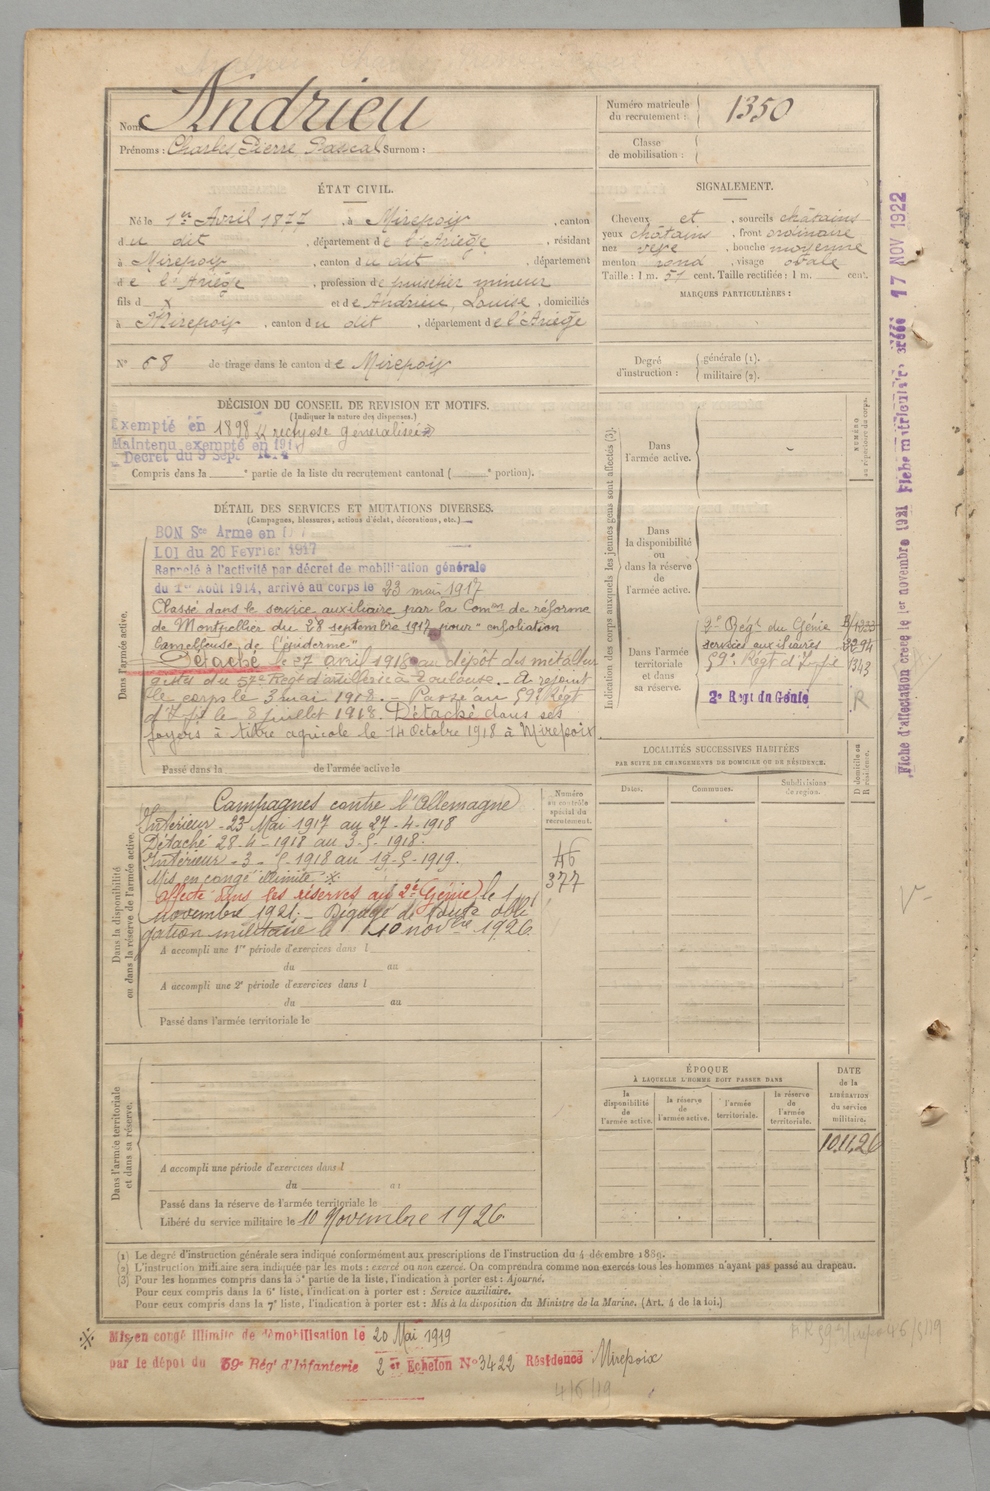 Nom Andrieu
Prénoms : Charles Pierre Pascal Surnom :
Numéro matricule du recrutement : 1350
Classe de mobilisation :
ÉTAT CIVIL.
Né le 1er Avril 1877, à Mirepoix, canton
du dit, département de l'Ariège, résidant
à Mirepoix, canton du dit, département
de l'Ariège, profession de puisetier mineur
fils d x et de Andrieu, Louise, domiciliés
à Mirepoix, canton du dit, département de l'Ariège
N° 68 de tirage dans le canton de Mirepoix
SIGNALEMENT.
Cheveux et, sourcils châtains
yeux châtains, front ordinaire
nez, bouche moyenne
menton rond, visage ovale
Taille : 1 m. 51 cent. Taille rectifiée : 1 m. cent.
MARQUES PARTICULIÈRES :
Degré d'instruction : générale (1). militaire (2).
DÉCISION DU CONSEIL DE REVISION ET MOTIFS.
(Indiquer la nature des dispenses.)
Exempté en 1898 généralisée
Maintenu exempté en 191
Décret du 9 Sep. 1914
Compris dans la e partie de la liste du recrutement cantonal ( e portion).
DÉTAIL DES SERVICES ET MUTATIONS DIVERSES.
(Campagnes, blessures, actions d'éclat, décorations, etc.)
Dans l'armée active.
BON Sce Armé en
LOI du 20 Février 1917
Rappelé à l'activité par décret de mobilisation générale
du 1er Août 1914, arrivé au corps le 23 mai 1917
Classé dans le service auxiliaire par la Comon de réforme
de Montpellier du 28 septembre 1917 pour "exfoliation
lamelleuse de l'épiderme"
Détaché le 27 avril 1918 au dépôt des métallur
gistes du 57e Régt d'artillerie à Toulouse. - A rejoint
le corps le 3 mai 1918. - Passé au 59e Régt
d'Infie le 8 juillet 1918. Détaché dans ses
foyers à titre agricole le 14 Octobre 1918 à Mirepoix
Passé dans la de l'armée active le
Indication des corps auxquels les jeunes gens sont affectés (3).
NUMÉRO au répertoire du corps.
Dans l'armée active.
Dans la disponibilité ou dans la réserve de l'armée active.
Dans l'armée territoriale et dans sa réserve.
2e Régt du Génie
services auxiliaires 3294
59e Régt d'Infie 1343
2e Régt du Génie R
LOCALITÉS SUCCESSIVES HABITÉES
PAR SUITE DE CHANGEMENTS DE DOMICILE OU DE RÉSIDENCE.
Dates. Communes. Subdivisions de région. D domicile ou R résidence.
Dans la disponibilité ou dans la réserve de l'armée active.
Numéro au contrôle spécial du recrutement.
46
377
Campagnes contre l'Allemagne
Intérieur - 23 Mai 1917 au 27-4-1918
Détaché 28-4-1918 au 3-5-1918.
Intérieur - 3-5-1918 au 19-5-1919.
Mis en congé illimité ※
affecté dans les réserves au 2e Génie le 1er
novembre 1921. - Dégagé de toute obli
gation militaire le 10 novbre 1926.
A accompli une 1re période d'exercices dans l
du au
A accompli une 2e période d'exercices dans l
du au
Passé dans l'armée territoriale le
Dans l'armée territoriale et dans sa réserve.
A accompli une période d'exercices dans l
du au
Passé dans la réserve de l'armée territoriale le
Libéré du service militaire le 10 Novembre 1926
ÉPOQUE
À LAQUELLE L'HOMME DOIT PASSER DANS
la disponibilité de l'armée active. la réserve de l'armée active. l'armée territoriale. la réserve de l'armée territoriale.
DATE de la LIBÉRATION du service militaire.
10.11.26
(1) Le degré d'instruction générale sera indiqué conformément aux prescriptions de l'instruction du 4 décembre 1889.
(2) L'instruction militaire sera indiquée par les mots : exercé ou non exercé. On comprendra comme non exercés tous les hommes n'ayant pas passé au drapeau.
(3) Pour les hommes compris dans la 5e partie de la liste, l'indication à porter est : Ajourné.
Pour ceux compris dans la 6e liste, l'indication à porter est : Service auxiliaire.
Pour ceux compris dans la 7e liste, l'indication à porter est : Mis à la disposition du Ministre de la Marine. (Art. 4 de la loi.)
※ Mis en congé illimité de démobilisation le 20 Mai 1919
par le dépôt du 59e Régt d'Infanterie 2er Echelon N° 3422 Résidence Mirepoix
4/6/19
Fiche d'affectation créée le 1er novembre 1921 Fiche matriculaire créée 17 NOV 1922